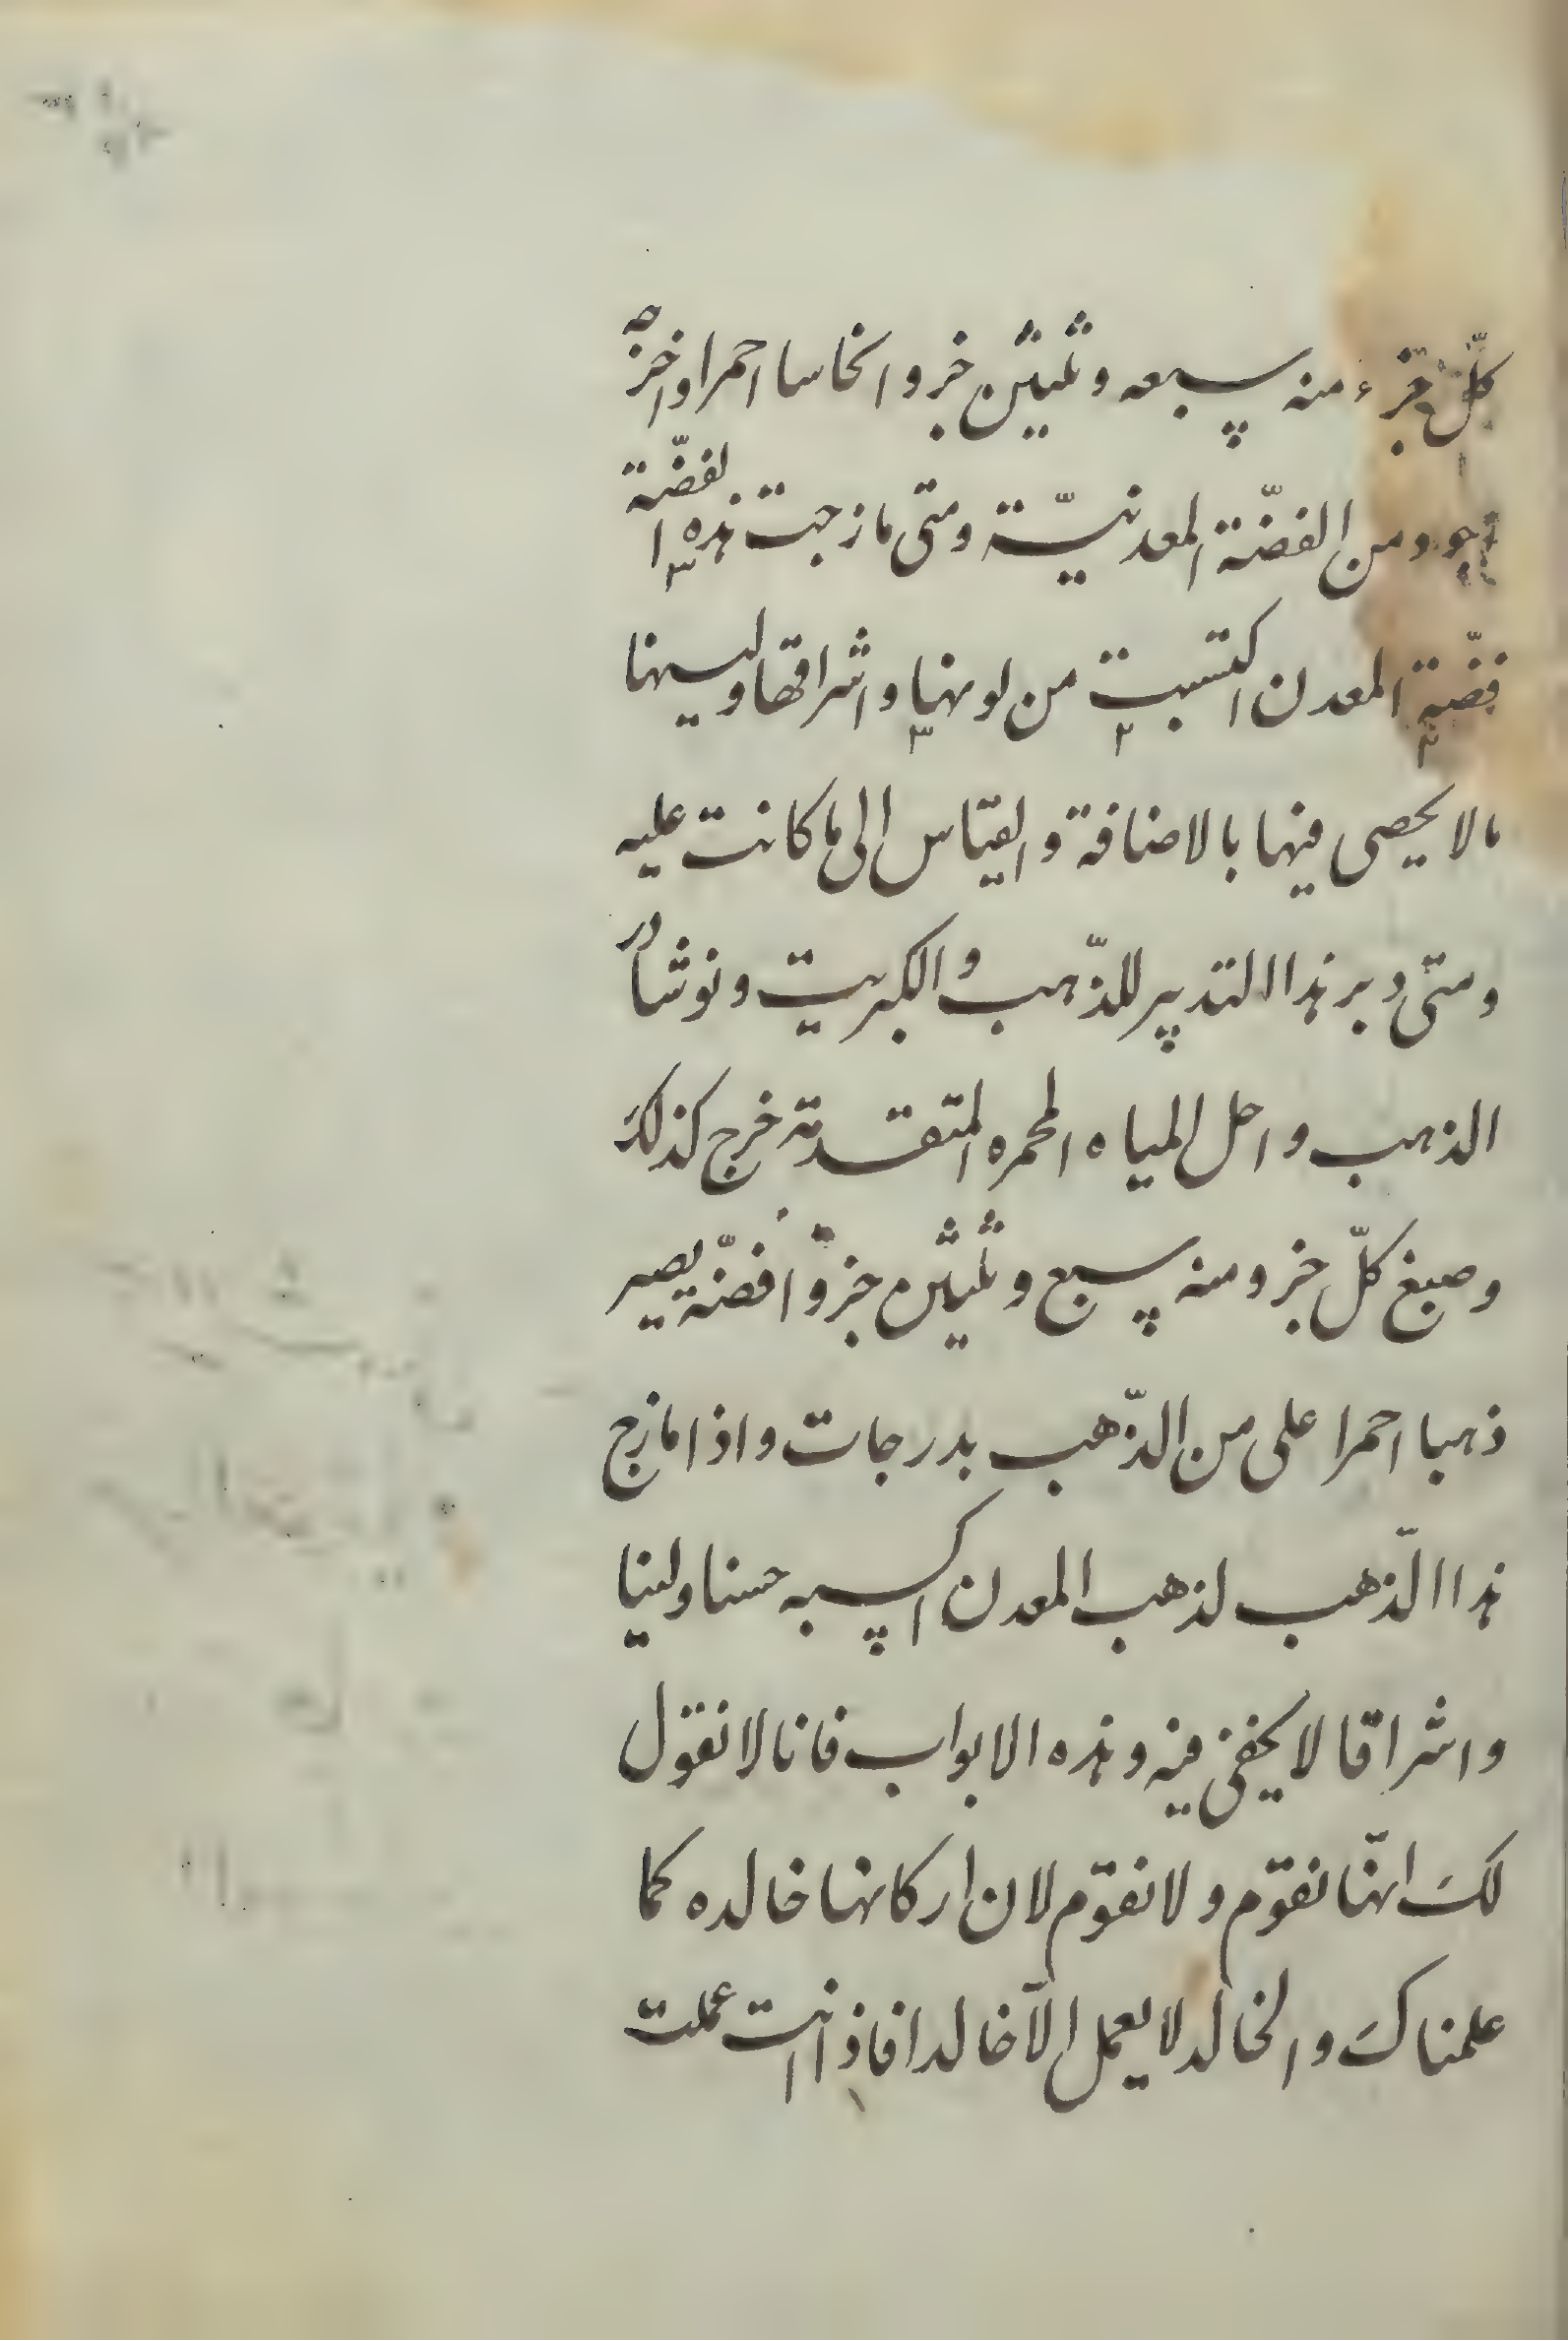 كلّ جزء منه سبعه وثلثين جزوا نحاسا احمرا واخرجه
اجود من الفضّة المعدنيّة ومتى مازجت هذه الفضّة
فضّة المعدن اكتسبت من لونها واشراقها ولينها
مالا يحصى فيها بالاضافة والقياس الى ما كانت عليه
ومتى دبر هذا التدبير للذّهب والكبريت ونوشادر
الذهب واحل المياه المحمره المتقدمة خرج كذلك
وصبغ كلّ جزو منه سبع وثلثين جزوا فضّة يصير
ذهبا احمرا على من الذّهب بدرجات واذا مازج
هذا الذّهب لذهب المعدن اكسبه حسنا ولينا
واشراقا لا يخفى فيه وهذه الابواب فانا لا نقول
لك انّها تقوّم ولا تقوّم لان اركانها خالده كما
علمناك والخالد لا يعمل الّا خالدا فاذا انت عملت